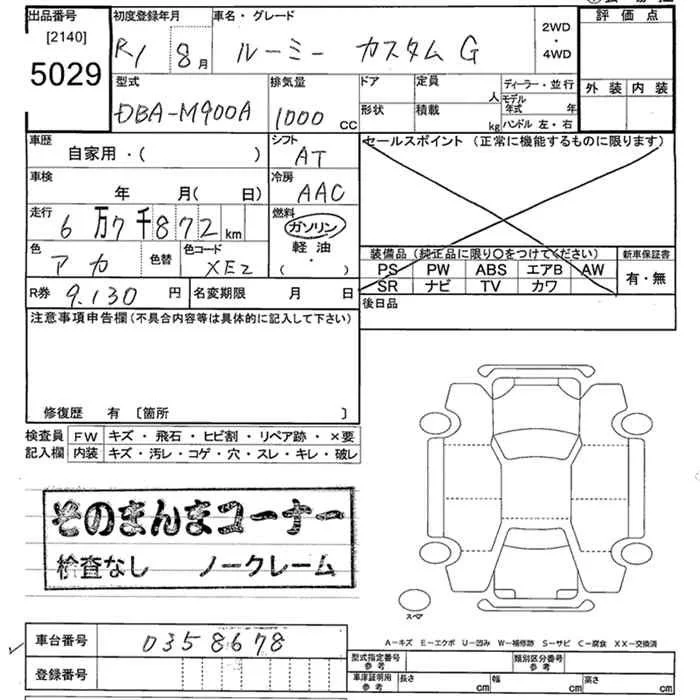 出品番号
[2140]
5029
初度登録年月
R1 8月
車名・グレード
ルーミー カスタムG
2WD
・
4WD
評価点
外装 内装
型式
DBA-M900A
排気量
1000 CC
ドア
形状
定員
人
積載
kg
ディーラー・並行
モデル年式 年
ハンドル 左・右
車歴
自家用・( )
シフト
AT
セールスポイント (正常に機能するものに限ります)
車検
年 月( 日)
冷房
AAC
走行
6万7千872km
燃料
ガソリン
軽油
( ・ )
色
アカ
色替
色コード
XE2
装備品(純正品に限り○をつけてください)
PS PW ABS エアB AW
SR ナビ TV カワ
新車保証書
有・無
R券 9,130円
名変期限 月 日
後日品
注意事項申告欄(不具合内容等は具体的に記入して下さい)
修復歴 有 [箇所 ]
検査員 FW キズ・飛石・ヒビ割・リペア跡・×要
記入欄 内装 キズ・汚レ・コゲ・穴・スレ・キレ・破レ
そのまんまコーナー
検査なし ノークレーム
スペア
A-キズ E-エクボ U-凹み W-補修跡 S-サビ C-腐食 XX-交換済
車台番号 0358678
登録番号
型式指定番号 参考
類別区分番号 参考
車庫証明用 参考
長さ cm 幅 cm 高さ cm